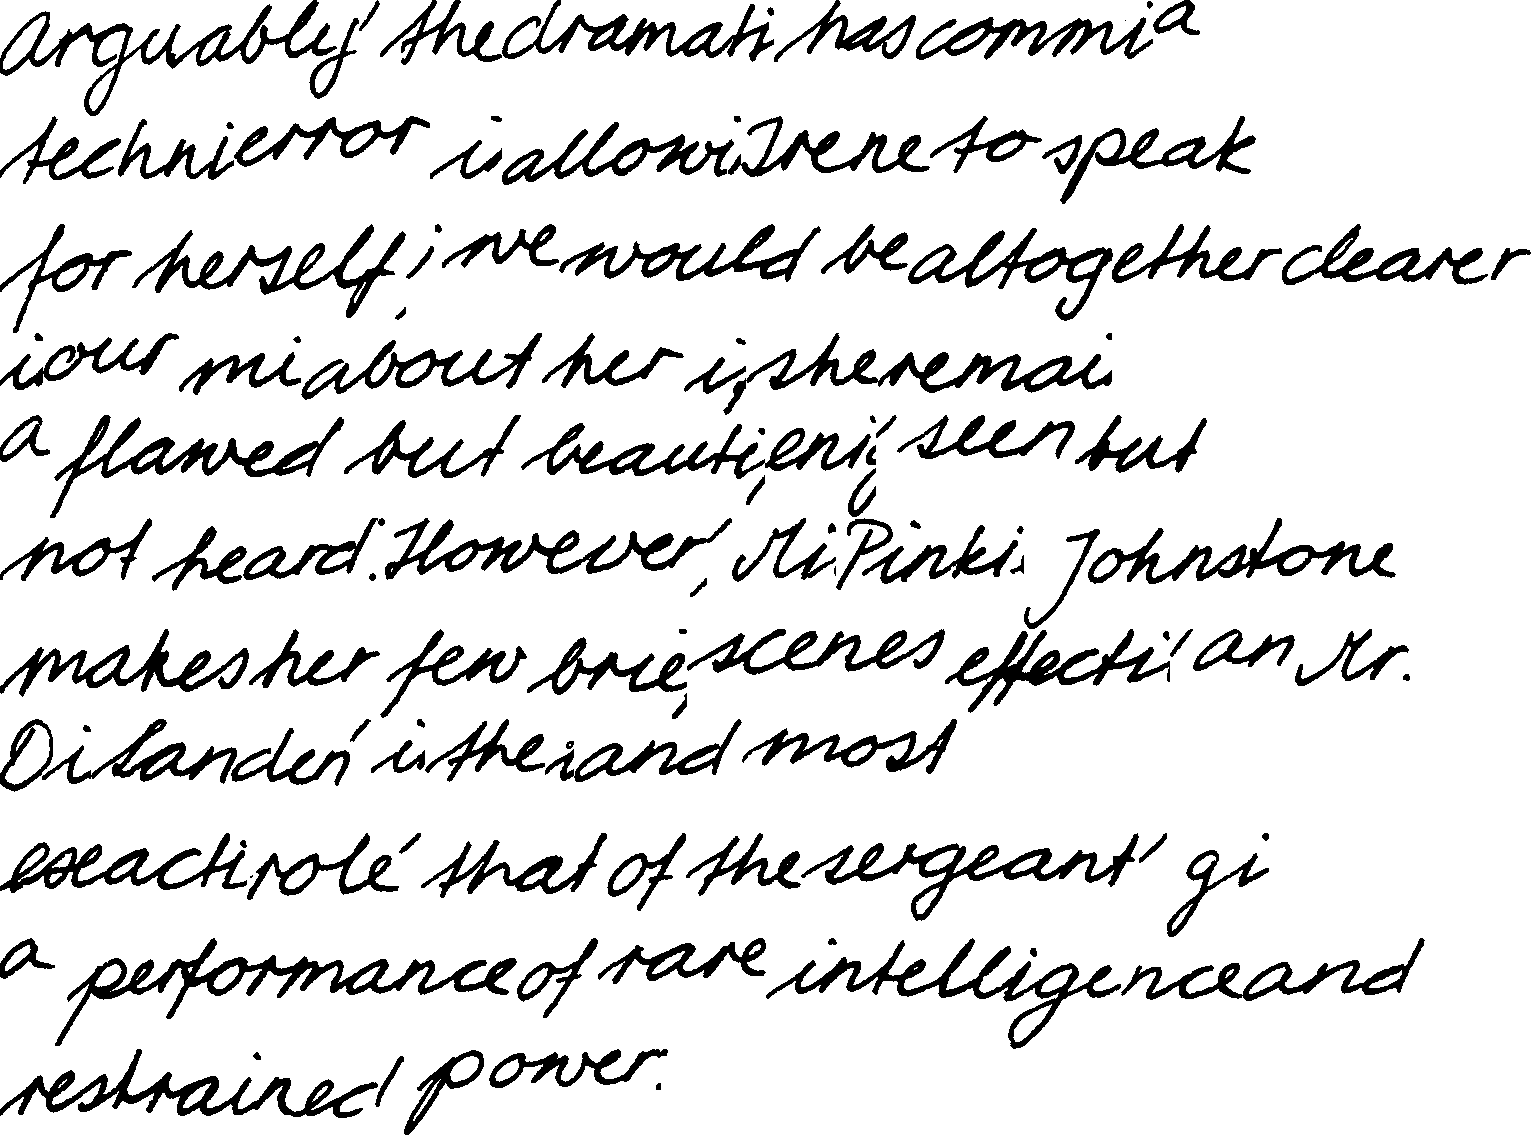 Arguably the dramati has commi a
techni error is allowi Irene to speak
for herself; we would be altogether clearer
i our mi about her i, she remai
a flawed but beauti eni, seen but
not heard. However, Mi Pinki Johnstone
makes her few brie scenes effecti an Mr.
Di Landen is the and most
exacti role that of the sergeant gi
a performance of rare intelligence and
restrained power.